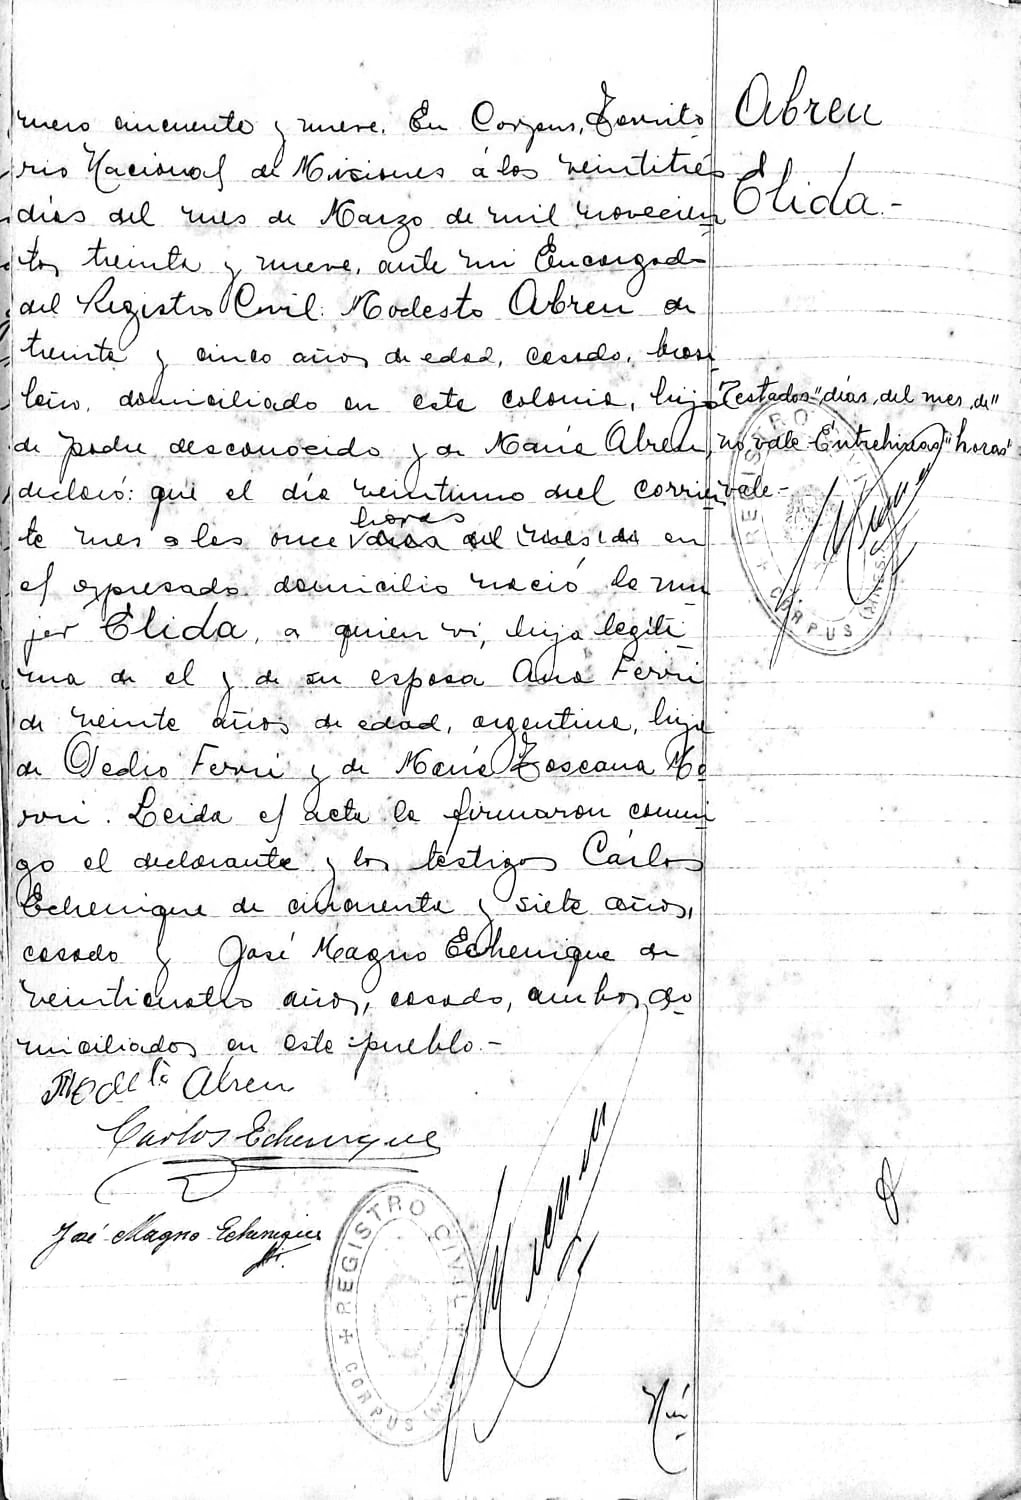 mero cincuenta y nueve. En Corpus, Territo
rio Nacional de Misiones á los veintitrés
días del mes de Marzo de mil novecien
tos treinta y nueve, ante mi Encargado
del Registro Civil: Modesto Abreu de
treinta y cinco años de edad, casado, brasi
leño, domiciliado en esta colonia, hijo
de padre desconocido y de María Abreu,
declaró: que el día veintiuno del corrien
te mes a las once
horas
días del mes de en
el expresado domicilio nació la mu
jer Élida, a quien vi, hija legíti
ma de el y de su esposa Ana Ferri
de veinte años de edad, argentina, hija
de Pedro Ferri y de María Toscana
Leida el acta la firmaron conmi
go el declarante y los testigos Cárlos
Echenique de cincuenta y siete años,
casado y José Magno Echenique de
veinticuatro años, casado, ambos do
miciliados en este pueblo.-
Abreu
Carlos Echenique
José Magno Echenique
REGISTRO CIVIL
CORPUS
Abreu
Élida.-
Testados "días, del mes, de"
no vale Entrelineas "horas"
vale-
REGISTRO
CORPUS (MNES.)